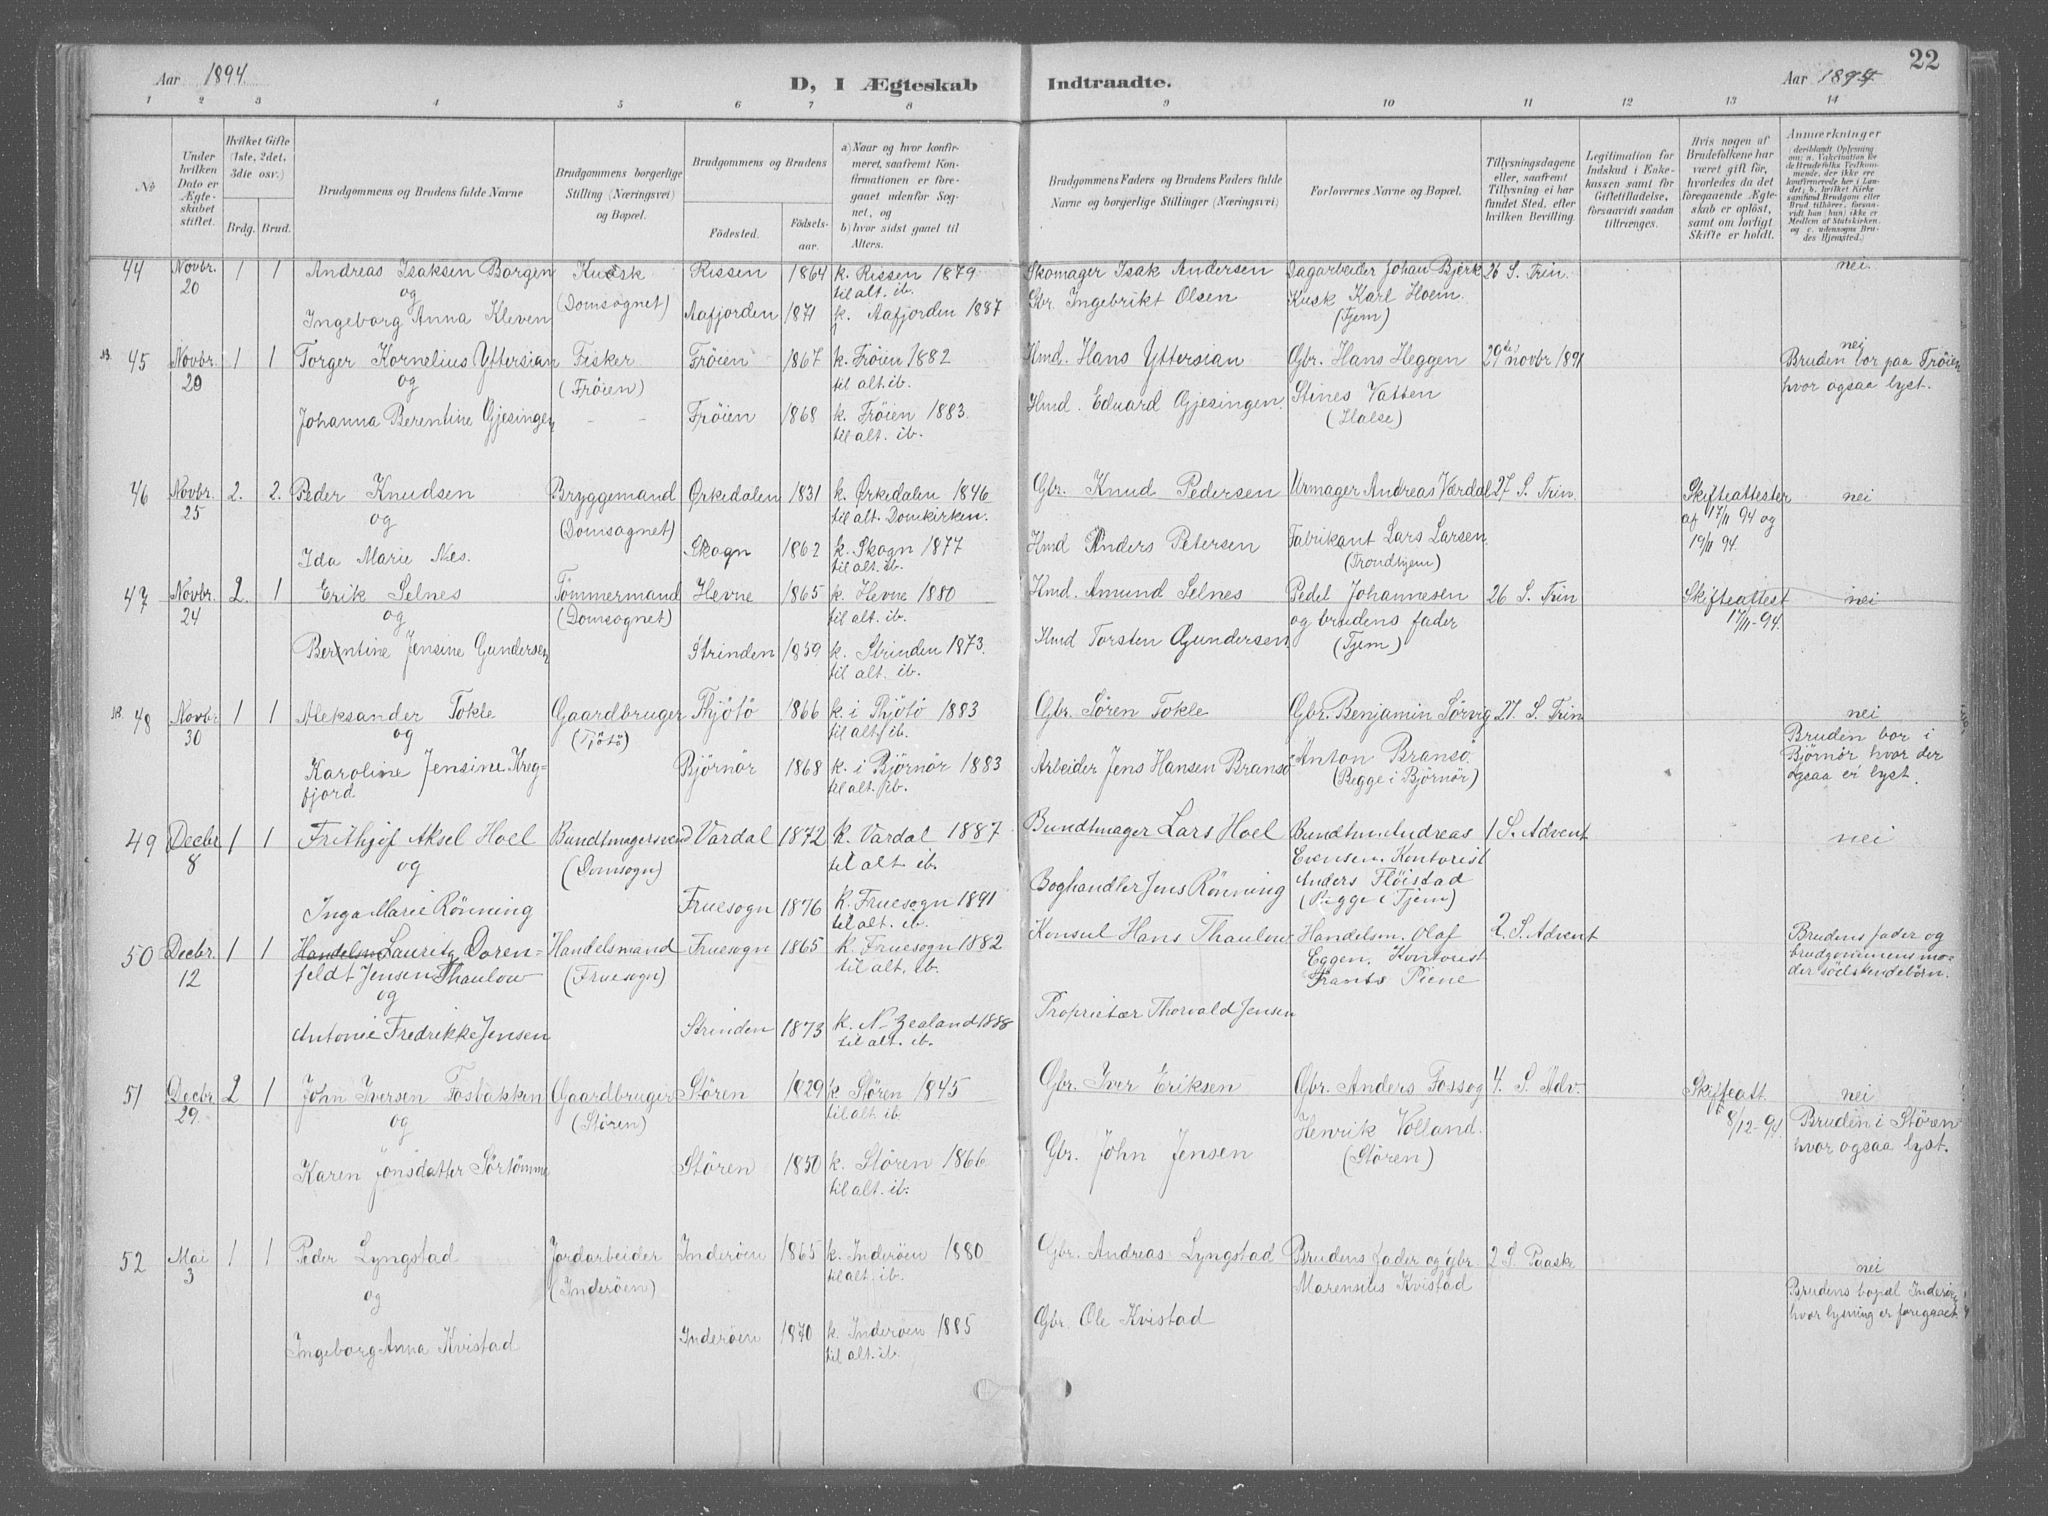 Aar 1894.
D, I Ægteskab Indtraadte.
Aar 1894.
22
1 2 3 4 5 6 7 8 9 10 11 12 13 14
No
Under hvilken Dato er Ægteskabet stiftet.
Hvilket Gifte (1ste, 2det, 3die osv.)
Brdg. Brud.
Brudgommens og Brudens fulde Navne
Brudgommens borgerlige Stilling (Næringsvei) og Bopæl.
Brudgommens og Brudens
Fødested.
Fødselsaar.
a) Naar og hvor konfirmeret, saafremt Konfirmationen er foregaaet udenfor Sognet, og
b) hvor sidst gaaet til Alters.
Brudgommens Faders og Brudens Faders fulde Navne og borgerlige Stillinger (Næringsvei)
Forlovernes Navne og Bopæl.
Tillysningsdagene eller, saafremt Tillysning ei har fundet Sted, efter hvilken Bevilling.
Legitimation for Indskud i Enkekassen samt for Giftetilladelse, forsaavidt saadan tiltrænges.
Hvis nogen af Brudefolkene har været gift før, hvorledes da det foregaaende Ægteskab er opløst, samt om lovligt Skifte er holdt.
Anmærkninger
44 Novbr. 20 1 1 Andreas Isaksen Borgen Kudsk Rissen 1864 k. Rissen 1879 Skomager Isak Andersen Dagarbeider Johan Bjerk 26 S. Trin. nei.
og (Domsognet) til alt. ib. Gbr. Ingebrikt Olsen Kusk Karl Hoem
Ingeborg Anna Kleven Aafjorden 1871 k. Aafjorden 1887 (Tjem)
NB. 45 Novbr. 29 1 1 Torger Kornelius Yttersian Fisker Frøien 1867 k. Frøien 1882 Hmd. Hans Yttersian Gbr. Hans Heggen 29de novbr 1891 nei
og (Frøien) til alt. ib. Bruden bor paa Frøien
Hmd. Eduard Gjesingen. Stines Vatten hvor ogsaa lyst.
Johanna Berentine Gjesingen - - Frøien 1868 k. Frøien 1883. (Halse)
til alt. ib.
46 Novbr. 25 2. 2. Peder Knudsen Bryggemand Ørkedalen 1831 k. Ørkedalen 1846 Gbr. Knud Pedersen Urmager Andreas Værdal 27 S. Trin. Skifteattester nei
og (Domsognet) til alt. Domkirken. af 17/11 94 og
Ida Marie Næs. Skogn 1862 k. Skogn 1877 Hmd Anders Petersen Fabrikant Lars Larsen 19/11 94.
til alt. ib. (Trondhjem)
47 Novbr. 24 2. 1 Erik Selnes Tømmermand Hevne 1865 k. Hevne 1880 Hmd. Amund Selnes Pedel Johannesen 26 S. Trin Skifteattest nei
og (Domsognet) til alt. ib. og brudens fader 17/11-94.
Berntine Jensine Gundersen Strinden 1859 k. Strinden 1873. Hmd Torsten Gundersen (Tjem)
til alt. ib.
NB. 48 Novbr 30 1 1 Aleksander Tokle Gaardbruger Thjøtø 1866 k. i Thjøtø 1883 Gbr. Søren Tokle Gbr. Benjamin Sørvig 27. S. Trin nei
og (Tjøtø) til alt. ib. Bruden bor i
Karoline Jensine Kregfjord Bjørnør 1868 k. i Bjørnør 1883 Arbeider Jens Hansen Bransø Anton Bransø. Bjørnør hvor der
til alt. ib. (Begge i Bjørnør) ogsaa er lyst.
49 Decbr 8 1 1 Frithjof Aksel Hoel Bundtmagersvend Vardal 1872 k. Vardal 1887 Bundtmager Lars Hoel Bundtm. Andreas 1 S. Advent nei
og (Domsogn) til alt ib. Evensen. Kontorist
Fruesogn 1876 k. Fruesogn 1891 Boghandler Jens Rønning Anders Fløistad
Inga Marie Rønning til alt. ib. (Begge i Tjem)
50 Decbr. 12 1 1 Lauritz Dorenfeldt Jensen Thaulow Handelsmand Fruesogn 1865 k. Fruesogn 1882 Konsul Hans Thaulow Handelsm. Olaf 2. S. Advent Brudens fader og
og (Fruesogn) til alt. ib. Eggen, Kontorist brudgommens moder södskendebörn.
Frants Piene
Antonie Fredrikke Jensen Strinden 1873 k. N. Zealand 1888 Proprietær Thorvald Jensen
til alt. ib.
51 Decbr 29. 2 1 John Iversen Fosbakken Gaardbruger Støren 1829 k Støren 1845 Gbr. Iver Eriksen Gbr. Anders Fossog 4. S. Adv. Skifteatt. nei
og (Støren) til alt ib. Henrik Volland. 8/12-94. Bruden i Støren
Karen Jonsdatter Sørtømme Støren 1850 k. Støren 1866 Gbr. John Jensen (Støren) hvor ogsaa lyst.
til alt. ib.
52 Mai 3 1 1 Peder Lyngstad Jordarbeider Inderøen 1865 k. Inderøen 1880 Gbr. Andreas Lyngstad Brudens fader og gbr 2 S Paaske nei
og (Inderøen) til alt. ib. Marensius Kvistad Brudens bopæl Inderøen
Ingeborg Anna Kvistad Inderøen 1870 k. Inderøen 1885 Gbr. Ole Kvistad hvor lysning er foregaaet
til alt. ib.